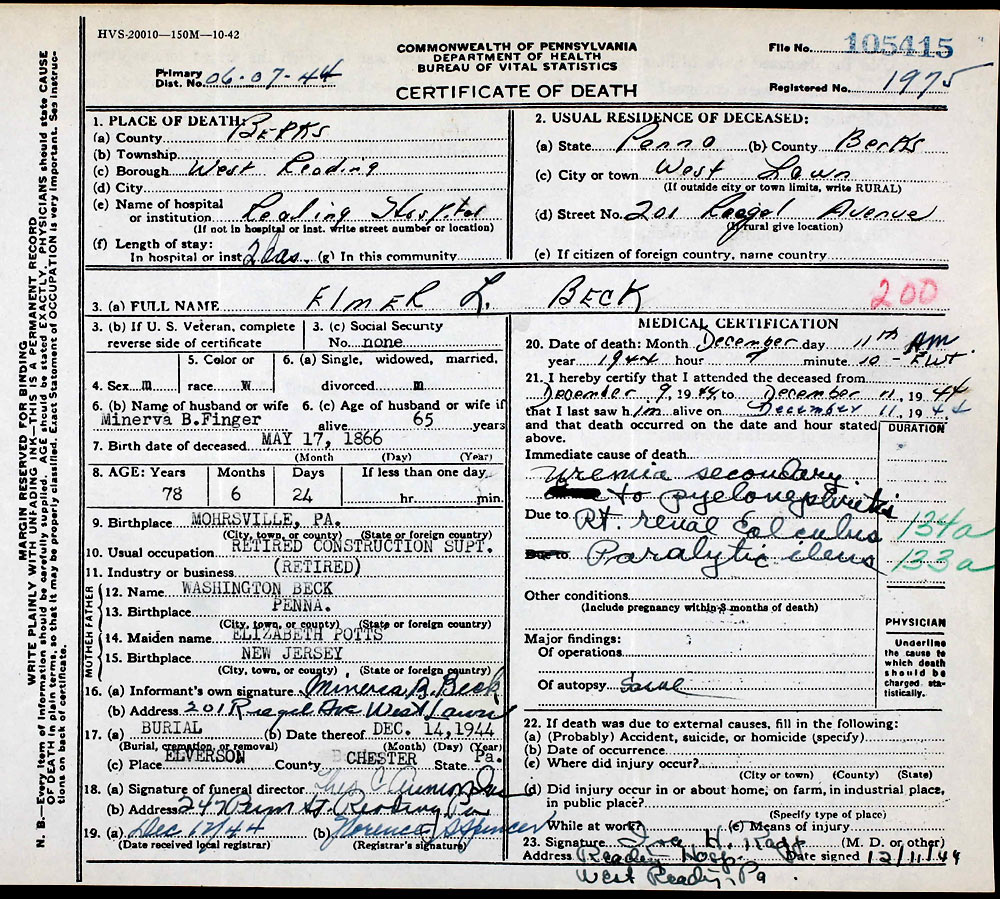 HVS-20010—150M—10-42
COMMONWEALTH OF PENNSYLVANIA
DEPARTMENT OF HEALTH
BUREAU OF VITAL STATISTICS
CERTIFICATE OF DEATH
Primary
Dist. No. 06-07-44
File No. 105415
Registered No. 1975
MARGIN RESERVED FOR BINDING
WRITE PLAINLY WITH UNFADING INK—THIS IS A PERMANENT RECORD
N. B.—Every item of information should be carefully supplied. AGE should be stated EXACTLY. PHYSICIANS should state CAUSE
OF DEATH in plain terms, so that it may be properly classified. Exact Statement of OCCUPATION is very important. See instruc-
tions on back of certificate.
1. PLACE OF DEATH:
(a) County BERKS
(b) Township
(c) Borough West Reading
(d) City
(e) Name of hospital
or institution Reading Hospital
(If not in hospital or inst. write street number or location)
(f) Length of stay:
In hospital or inst. 2 das. (g) In this community
2. USUAL RESIDENCE OF DECEASED:
(a) State Penna (b) County Berks
(c) City or town West Lawn
(If outside city or town limits, write RURAL)
(d) Street No. 201 Reagel Avenue
(If rural give location)
(e) If citizen of foreign country, name country
3. (a) FULL NAME ElMER L. BECK
200
3. (b) If U. S. Veteran, complete
reverse side of certificate
3. (c) Social Security
No. none
4. Sex m
5. Color or
race w
6. (a) Single, widowed, married,
divorced m
6. (b) Name of husband or wife
Minerva B.Finger
6. (c) Age of husband or wife if
alive 65 years
7. Birth date of deceased MAY 17, 1866
(Month) (Day) (Year)
8. AGE: Years Months Days If less than one day
78 6 24 hr. min.
9. Birthplace MOHRSVILLE, PA.
(City, town, or county) (State or foreign country)
10. Usual occupation RETIRED CONSTRUCTION SUPT.
11. Industry or business (RETIRED)
FATHER
12. Name WASHINGTON BECK
13. Birthplace PENNA.
(City, town, or county) (State or foreign country)
MOTHER
14. Maiden name ELIZABETH POTTS
15. Birthplace NEW JERSEY
(City, town, or county) (State or foreign country)
16. (a) Informant's own signature Minerva B. Beck
(b) Address 201 Reagel Ave West Lawn
17. (a) BURIAL (b) Date thereof DEC. 14,1944
(Burial, cremation, or removal) (Month) (Day) (Year)
(c) Place ELVERSON County CHESTER State Pa.
18. (a) Signature of funeral director
(b) Address 247 Penn St. Reading Pa
19. (a) Dec 12/44 (b) Florence J Spencer
(Date received local registrar) (Registrar's signature)
MEDICAL CERTIFICATION
20. Date of death: Month December day 11th AM
year 1944 hour 7 minute 10 - EWT
21. I hereby certify that I attended the deceased from
December 9, 1944 to December 11, 1944
that I last saw him alive on December 11, 1944
and that death occurred on the date and hour stated
above.
DURATION
Immediate cause of death
Uremia secondary
to pyelonephritis
Due to Rt. renal calculus 134a
Due to Paralytic ileus 133a
Other conditions
(Include pregnancy within 3 months of death)
Major findings:
Of operations
Of autopsy
PHYSICIAN
Underline
the cause to
which death
should be
charged sta-
tistically.
22. If death was due to external causes, fill in the following:
(a) (Probably) Accident, suicide, or homicide (specify)
(b) Date of occurrence
(c) Where did injury occur?
(City or town) (County) (State)
(d) Did injury occur in or about home, on farm, in industrial place,
in public place?
(Specify type of place)
While at work? (e) Means of injury
23. Signature Ira H. (M. D. or other)
Address Reading Hosp. Date signed 12/11/44
West Reading, Pa